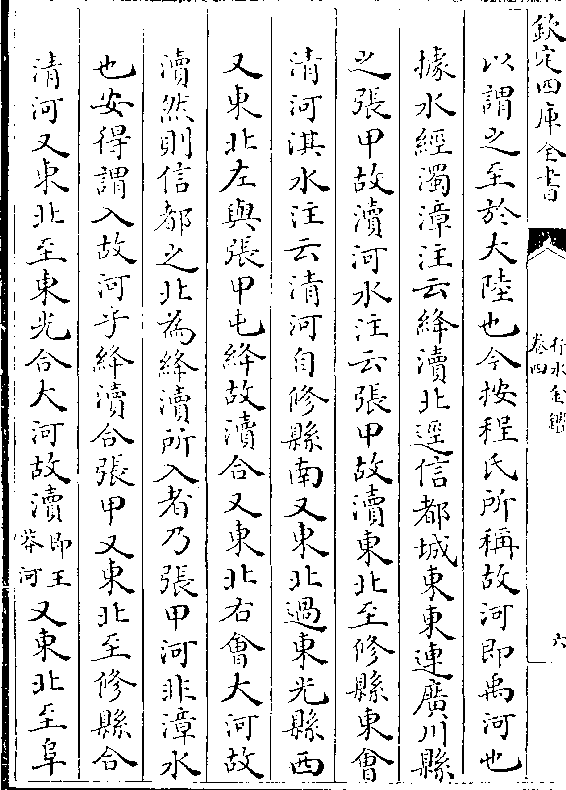 欽定四庫全書
行水金鑑
卷四
六
以謂之至於大陸也今按程氏所稱故河即禹河也
據水經濁漳注云絳瀆北逕信都城東東連廣川縣
之張甲故瀆河水注云張甲故瀆東北至修縣東會
清河淇水注云清河自修縣南又東北過東光縣西
又東北左與張甲屯絳故瀆合又東北右會大河故
瀆然則信都之北為絳瀆所入者乃張甲河非漳水
也安得謂入故河乎絳瀆合張甲又東北至修縣合
清河又東北至東光合大河故瀆即王莽河又東北至阜